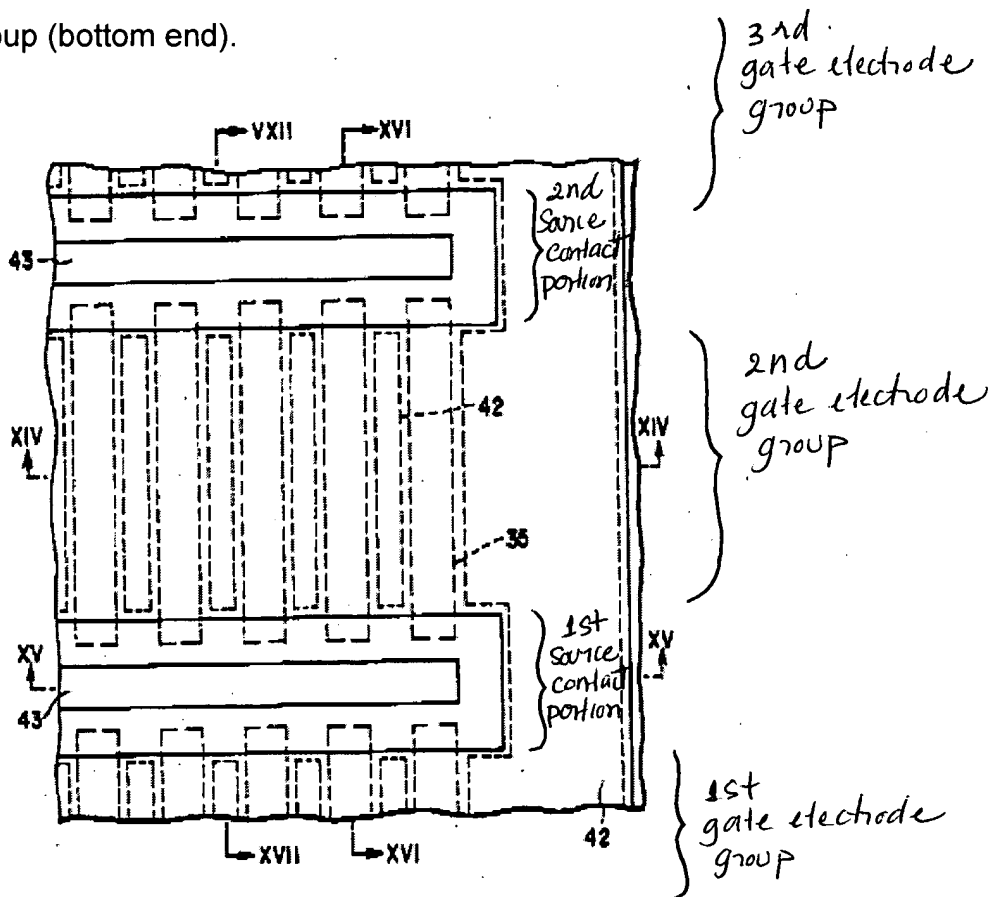 oup (bottom end).
3rd
gate electrode
group
VXII
XVI
2nd
Source
contact
portion
43
2nd
gate electrode
group
42
XIV
XIV
35
1st
source
contact
portion
XV
XV
43
1st
gate electrode
group
42
XVII
XVI